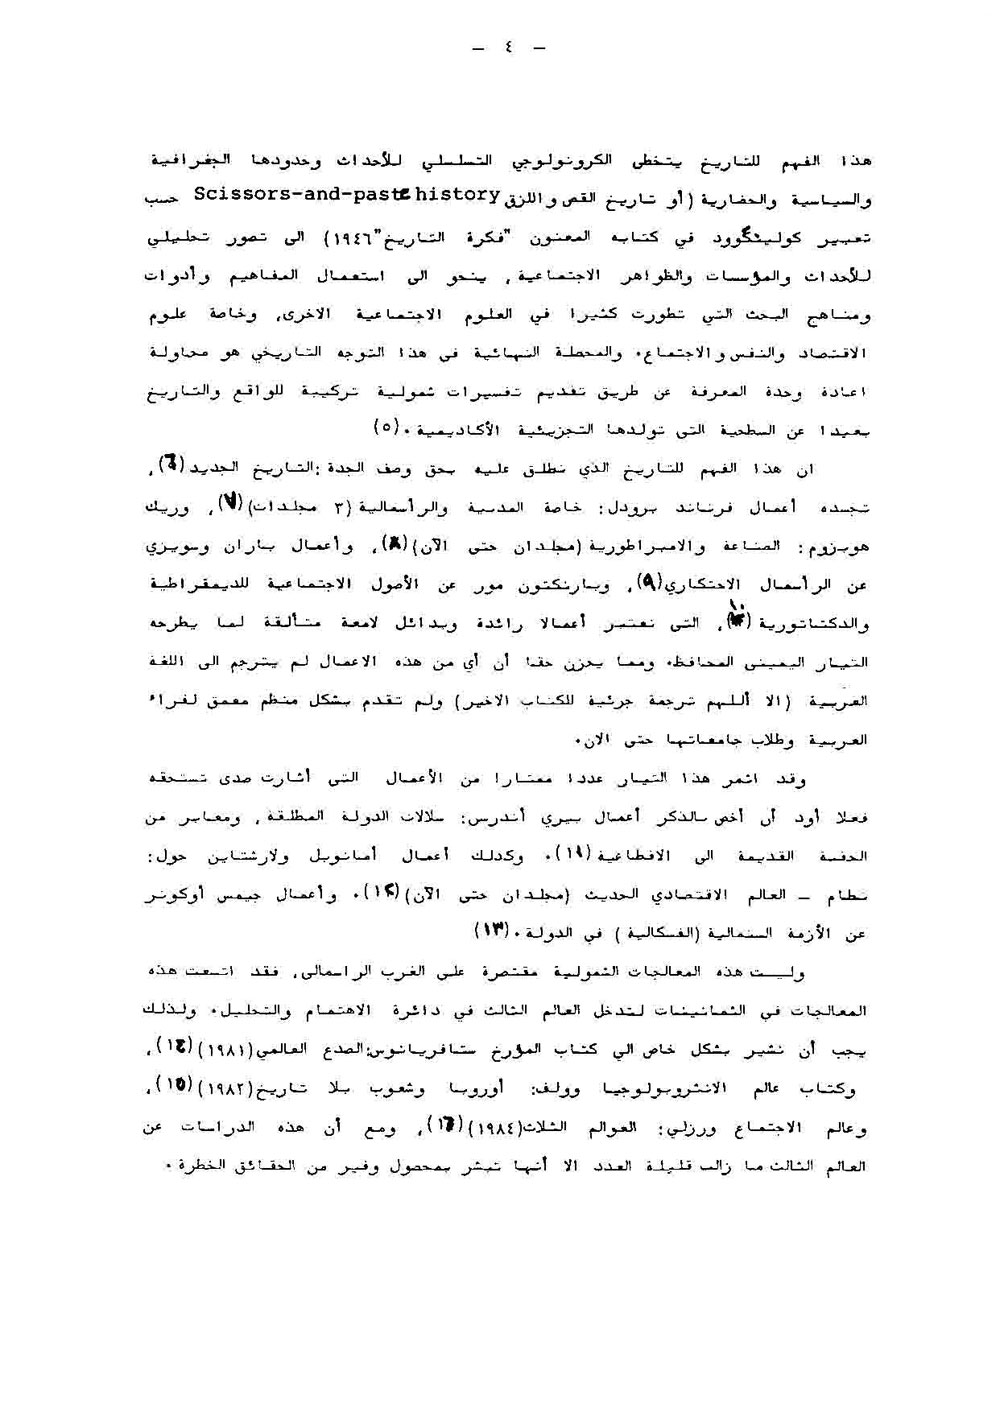 - ٤ -
هذا الفهم للتاريخ يتخطى الكرونولوجي التسلسلي للأحداث وحدودها الجغرافية
والسياسية والحضارية (أو تاريخ القص واللزق Scissors-and-paste history حسب
تعبير كولينگوود في كتابه المعنون "فكرة التاريخ" ١٩٤٦) الى تصور تحليلي
للأحداث والمؤسسات والظواهر الاجتماعية، ينحو الى استعمال المفاهيم وأدوات
ومناهج البحث التي تطورت كثيرا في العلوم الاجتماعية الاخرى، وخاصة علوم
الاقتصاد والنفس والاجتماع. والمحطة النهائية في هذا التوجه التاريخي هو محاولة
اعادة وحدة المعرفة عن طريق تقديم تفسيرات شمولية تركيبة للواقع والتاريخ
بعيدا عن السطحية التى تولدها التجزيئية الأكاديمية.(٥)
ان هذا الفهم للتاريخ الذي نطلق عليه بحق وصف الجدة :التاريخ الجديد(٦)،
تجسده أعمال فرناند برودل: خاصة المدنية والرأسمالية (٣ مجلدات)(٧)، وريك
هوبزوم: الصناعة والامبراطورية (مجلدان حتى الآن)(٨)، وأعمال باران وسويزي
عن الرأسمال الاحتكاري(٩)، وبارنكتون مور عن الأصول الاجتماعية للديمقراطية
والدكتاتورية(١٠)، التى تعتبر أعمالا رائدة وبدائل لامعة متألقة لما يطرحه
التيار اليمينى المحافظ. ومما يحزن حقا أن أي من هذه الاعمال لم يترجم الى اللغة
العربية (الا أللهم ترجمة جزئية للكتاب الاخير) ولم تقدم بشكل منظم معمق لقراء
العربية وطلاب جامعاتها حتى الان.
وقد اثمر هذا التيار عددا ممتازا من الأعمال التى أثارت صدى تستحقه
فعلا أود أن أخص بالذكر أعمال بيري أندرس: سلالات الدولة المطلقة، ومعابر من
الحقبة القديمة الى الاقطاعية(١١). وكذلك أعمال أمانويل ولارشتاين حول:
نظام - العالم الاقتصادي الحديث (مجلدان حتى الآن)(١٢). وأعمال جيمس أوكونر
عن الأزمة السنمالية (الفسكالية) في الدولة.(١٣)
وليست هذه المعالجات الشمولية مقتصرة على الغرب الراسمالى، فقد اتسعت هذه
المعالجات في الثمانينات لتدخل العالم الثالث في دائرة الاهتمام والتحليل. ولذلك
يجب أن نشير بشكل خاص الي كتاب المؤرخ ستافريانوس:الصدع العالمي(١٩٨١)(١٤)،
وكتاب عالم الانثروبولوجيا وولف: أوروبا وشعوب بلا تاريخ(١٩٨٢)(١٥)،
وعالم الاجتماع ورزلي: العوالم الثلاث(١٩٨٤)(١٦)، ومع أن هذه الدراسات عن
العالم الثالث ما زالت قليلة العدد الا أنها تبشر بمحصول وفير من الحقائق الخطرة.